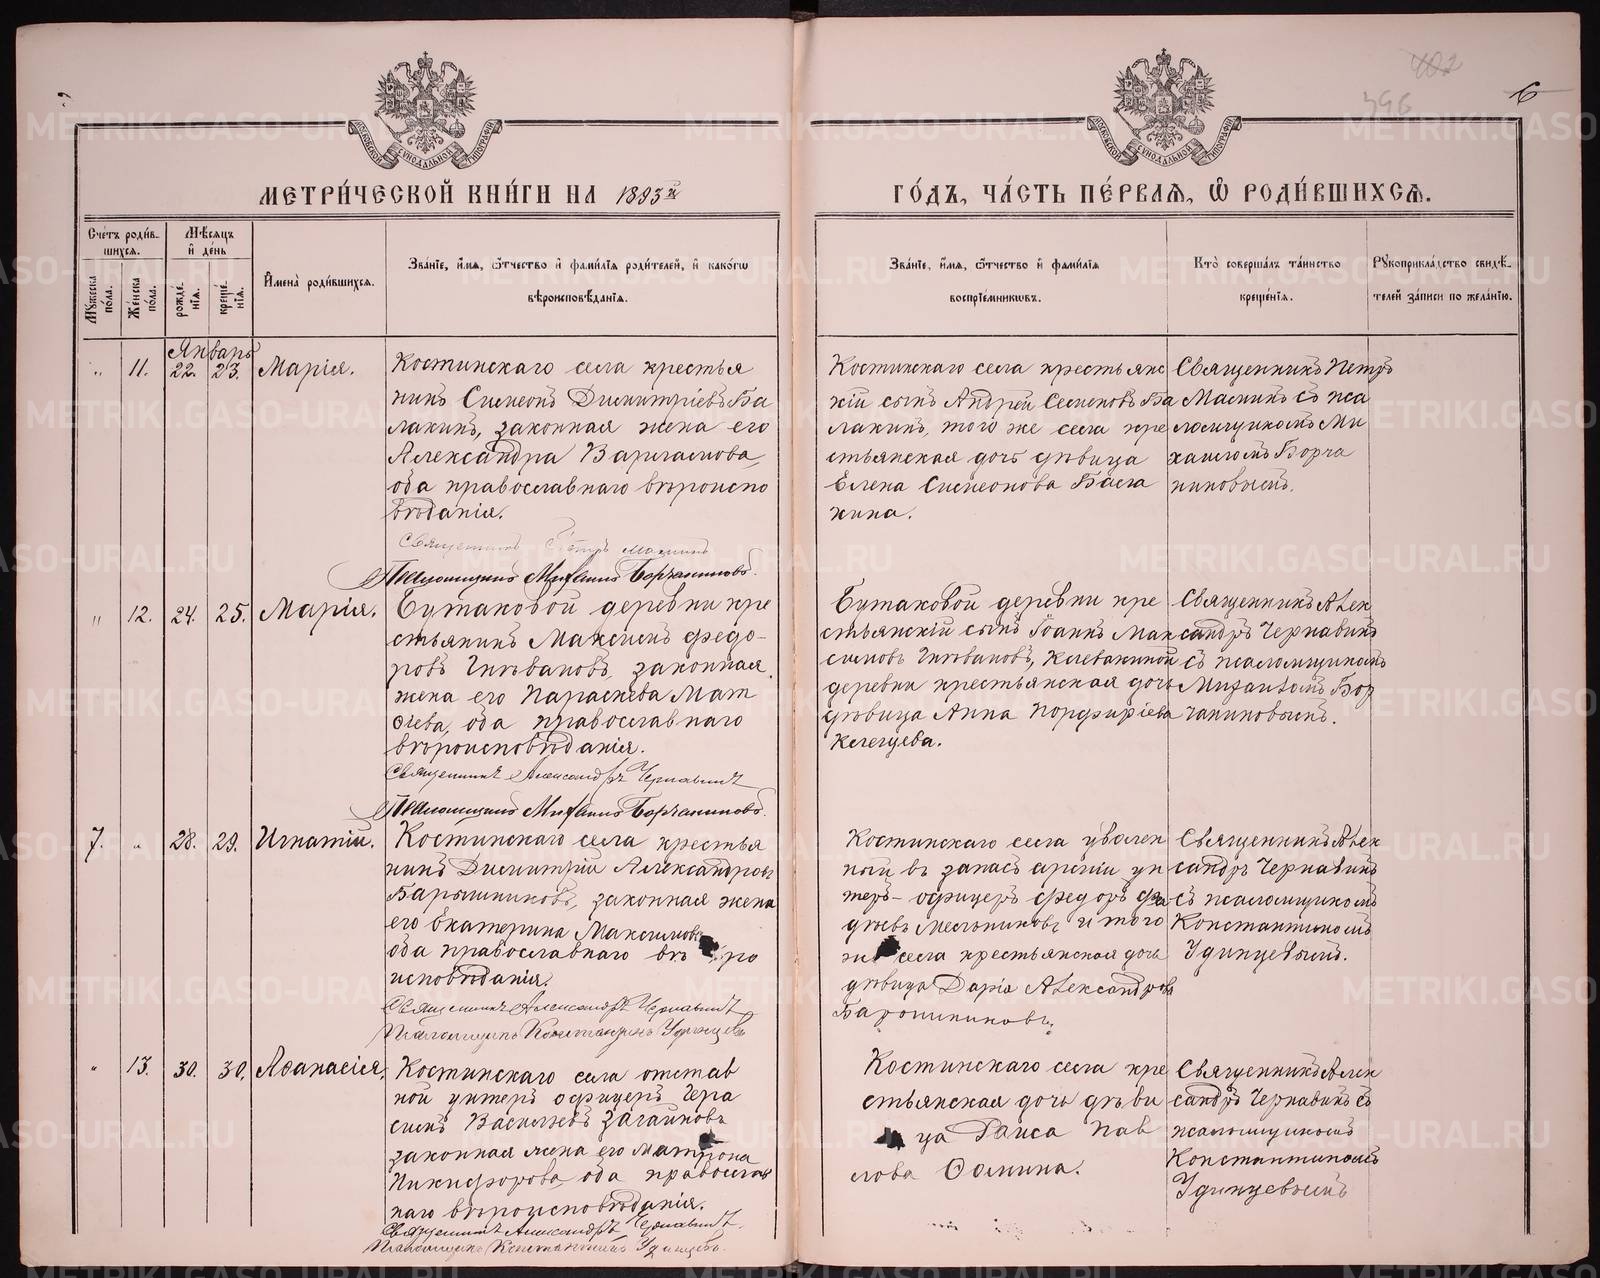 402
396
6
МОСКОВСКОЙ СУНОДАЛЬНОЙ ТИПОГРАФІИ
МОСКОВСКОЙ СУНОДАЛЬНОЙ ТИПОГРАФІИ
МЕТРИ́ЧЕСКОЙ КНИ́ГИ НА 1893й
ГО́ДЪ, ЧА́СТЬ ПЕ́РВАЯ, Ѡ РОДИ́ВШИХСЯ.
Сче́тъ роди́в-
шихся.
Мѣ́сяцъ
и҆ де́нь
Мꙋ́жеска
по́ла.
Же́нска
по́ла.
рожде́-
нїя.
креще́-
нїя.
И҆мена̀ роди́вшихся.
Зва́нїе, и҆́мя, ѻ҆́тчество и҆ фами́лїя роди́телей, и҆ како́гѡ
вѣроисповѣ́данїя.
Зва́нїе, и҆́мя, ѻ҆́тчество и҆ фами́лїя
воспрїе́мникѡвъ.
Кто̀ соверша́лъ та́инство
креще́нїя.
Рꙋкоприкла́дство свидѣ́-
телей за́писи по жела́нїю.
Январь
" 11. 22. 23. Марія.
Костинскаго села крестья
нинъ Симеонъ Димитріевъ Ба
лакинъ, законная жена его
Александра Варламова,
оба православнаго вѣроиспо
вѣданія.
Священникъ Петръ Маминъ
Псаломщикъ Михаилъ Борчаниновъ.
Костинскаго села крестьянс
кій сынъ Андрей Семеновъ Ба
лакинъ, того же села кре
стьянская дочь дѣвица
Елена Симеонова Бала
кина.
Священникъ Петръ
Маминъ съ пса
ломщикомъ Ми
хаиломъ Борча
ниновымъ.
" 12. 24. 25. Марія.
Бутаковой деревни кре
стьянинъ Максимъ Федо-
ровъ Гнѣвановъ, законная
жена его Параскева Мат
ѳеева, оба православнаго
вѣроисповѣданія.
Священникъ Александръ Чернавинъ
Псаломщикъ Михаилъ Борчаниновъ.
Бутаковой деревни кре
стьянскій сынъ Іоаннъ Мак
симовъ Гнѣвановъ, Клевакиной
деревни крестьянская дочь
дѣвица Анна Порфиріева
Клевцева.
Священникъ Алек
сандръ Чернавинъ
съ псаломщикомъ
Михаиломъ Бор
чаниновымъ.
7. " 28. 29. Игнатій.
Костинскаго села крестья
нинъ Димитрій Александровъ
Барышниковъ, законная жена
его Екатерина Максимова
оба православнаго вѣро
исповѣданія.
Священникъ Александръ Чернавинъ
Псаломщикъ Константинъ Удинцевъ
Костинскаго села уволен
ный въ запасъ арміи ун
теръ-офицеръ Федоръ Фа
дѣевъ Мельниковъ и того
же села крестьянская дочь
дѣвица Дарія Александрова
Барышникова.
Священникъ Алек
сандръ Чернавинъ
съ псаломщикомъ
Константиномъ
Удинцевымъ.
" 13. 30. 30. Аѳанасія.
Костинскаго села отстав
ной унтеръ офицеръ Гера
симъ Васильевъ Загайновъ
законная жена его Матрона
Никифорова, оба православ
наго вѣроисповѣданія.
Священникъ Александръ Чернавинъ.
Псаломщикъ Константинъ Удинцевъ.
Костинскаго села кре
стьянская дочь дѣви
ца Раиса Пав
лова Ѳомина.
Священникъ Алек
сандръ Чернавинъ съ
псаломщикомъ
Константиномъ
Удинцевымъ
METRIKI.GASO-URAL.RU